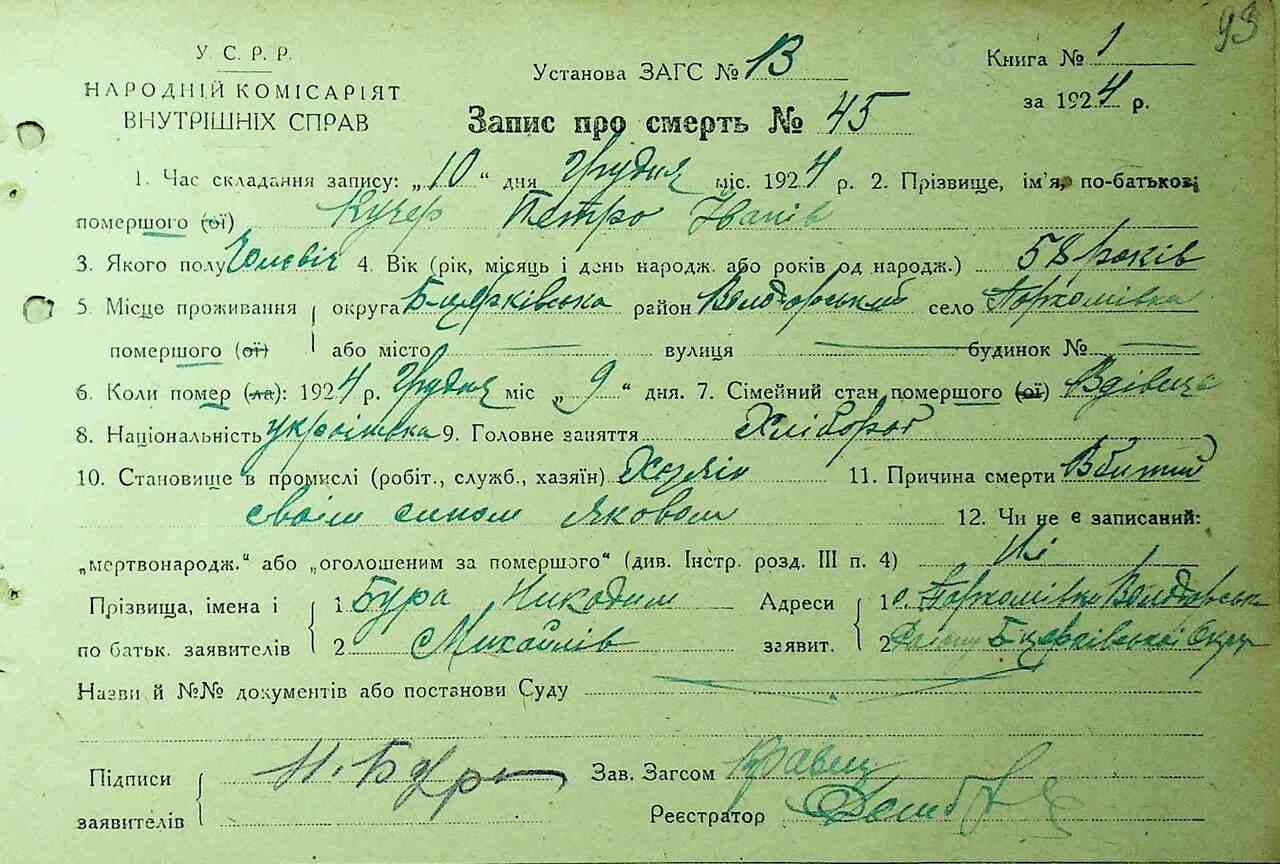 93
У. С. Р. Р.
НАРОДНІЙ КОМІСАРІЯТ
ВНУТРІШНІХ СПРАВ
Установа ЗАГС № 13
Книга № 1
за 1924 р.
Запис про смерть № 45
1. Час складання запису: „10“ дня Грудня міс. 1924 р. 2. Прізвище, ім'я, по-батькові
помершого (ої) Кучер Петро Іванів
3. Якого полу Чолєвіч 4. Вік (рік, місяць і день народж. або років од народж.) 58 років
5. Місце проживання округа Бцерківська район Володарський село Пархомівка
помершого (ої) або місто вулиця будинок №
6. Коли помер (ла): 1924 р. Грудня міс „9“ дня. 7. Сімейний стан помершого (ої) Вдівець
8. Національність українка 9. Головне заняття Хлібороб
10. Становище в промислі (робіт., служб., хазяїн) Хазяін 11. Причина смерти Вбитий
своім сином Яковом 12. Чи не є записаний:
„мертвонародж.“ або „оголошеним за помершого“ (див. Інстр. розд. III п. 4) Ні
Прізвища, імена і 1 Бура Никодим Адреси 1 с. Пархомівка
по батьк. заявителів 2 Михайлів заявит. 2 Бцерківськоі Округи
Назви й №№ документів або постанови Суду
Підписи Н. Бура Зав. Загсом Кравец
заявителів Реєстратор